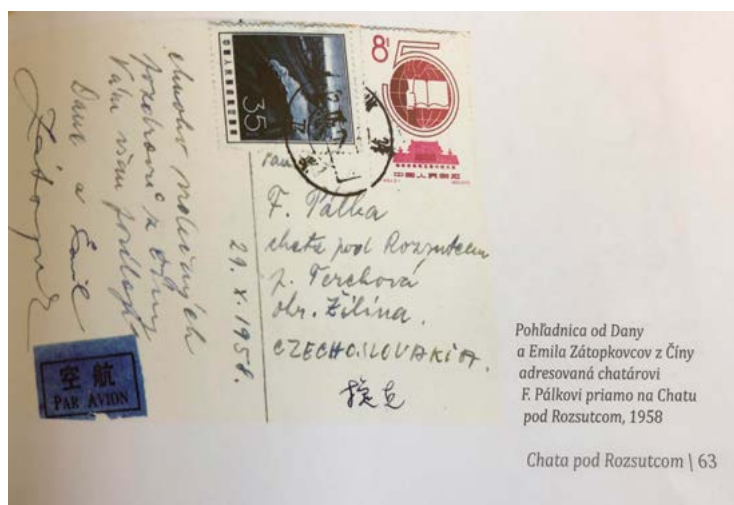 mnoho srdečných
pozdravů z Číny
Vám všem posílají
Dana a Emil
29. X. 1958.
35
中国人民邮政
8
5
中国人民邮政
pan
F. Pálka
chata pod Rozsutcem
p. Terchová
okr. Žilina.
CZECHOSLOVAKIA.
捷克
空航
PAR AVION
Pohľadnica od Dany
a Emila Zátopkovcov z Číny
adresovaná chatárovi
F. Pálkovi priamo na Chatu
pod Rozsutcom, 1958
Chata pod Rozsutcom \ 63